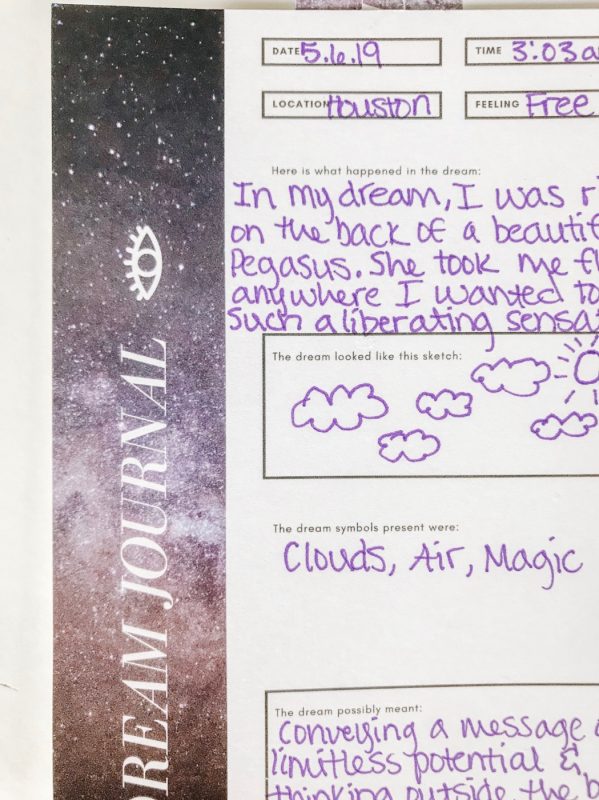 DREAM JOURNAL
DATE 5.6.19
TIME 3:03a
LOCATION Houston
FEELING Free
Here is what happened in the dream:
In my dream, I was
on the back of a
Pegasus. She took me
anywhere I wanted to
Such a liberating
The dream looked like this sketch:
The dream symbols present were:
Clouds, Air, Magic
The dream possibly meant:
Conveying a message
limitless potential &
thinking outside the